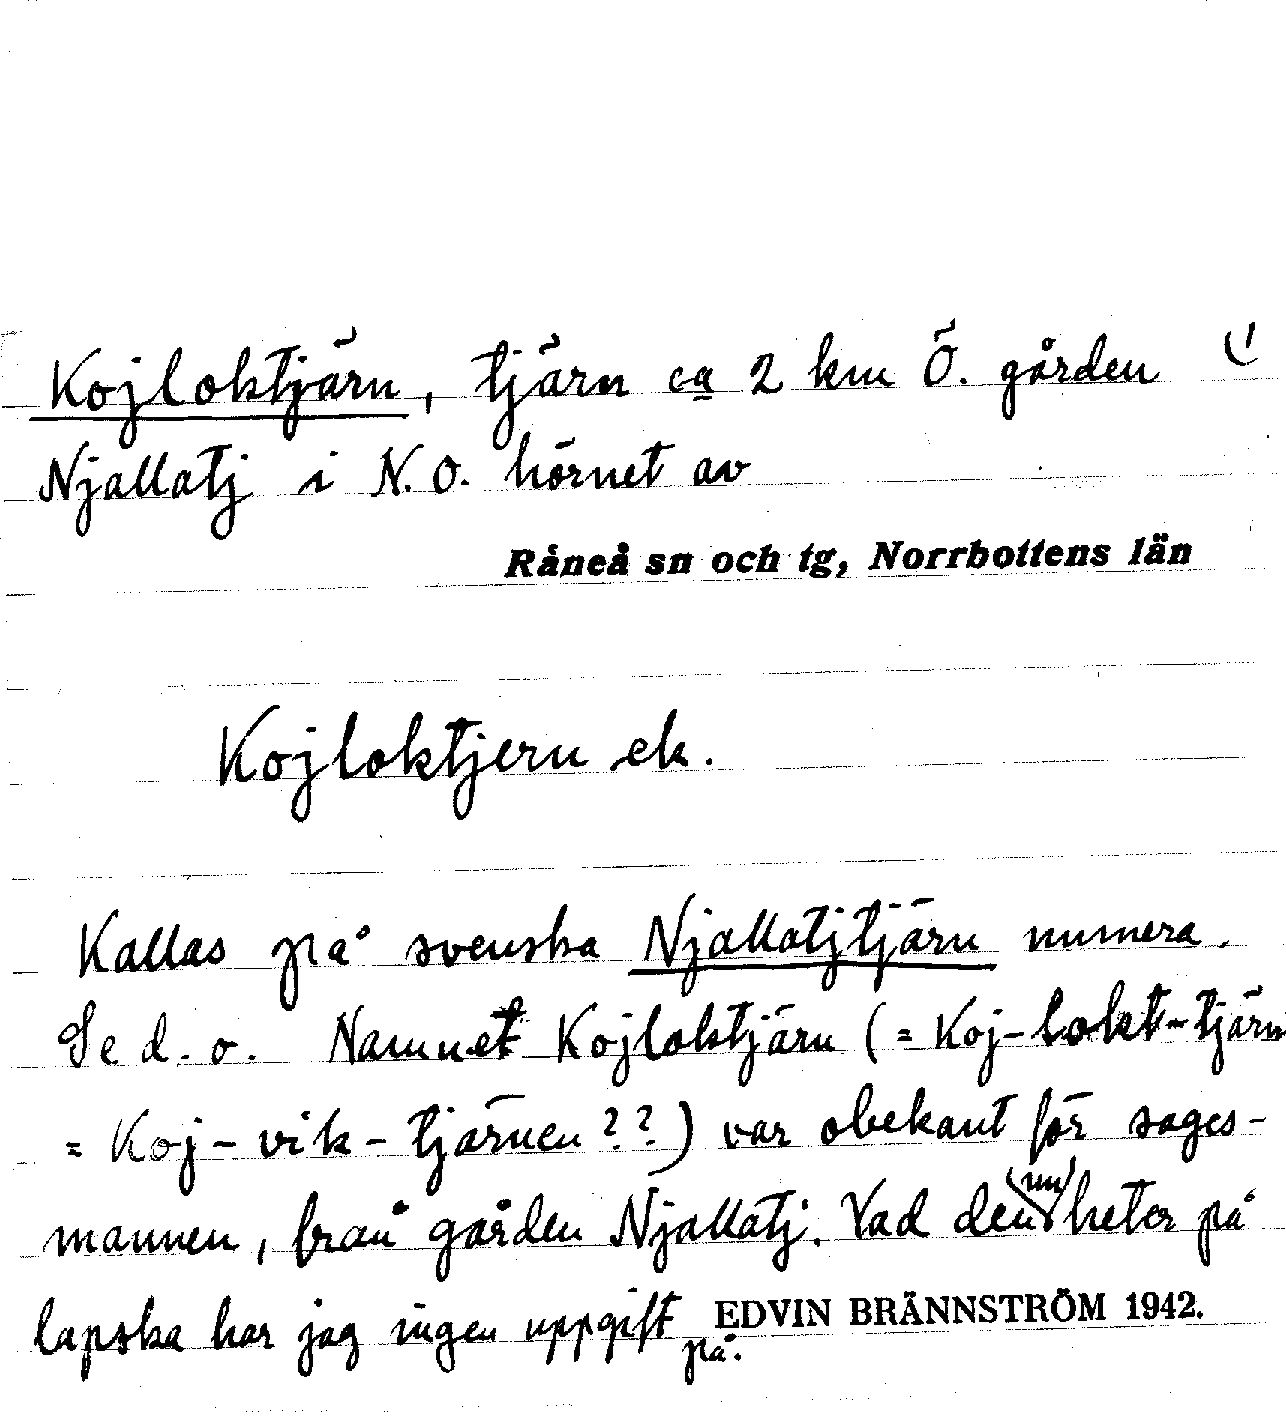 Kojloktjärn, tjärn ca 2 km Ö. gården
Njallatj i N.O. hörnet av
Råneå sn och tg, Norrbottens län
Kojloktjern ek.
Kallas på svenska Njallatjtjärn numera.
Se d.o. Namnet Kojloktjärn (= Koj-lokt-tjärn
= Koj-vik-tjärnen??) var obekant för sages-
mannen, från gården Njallatj. Vad den (nu) heter på
lapska har jag ingen uppgift på.
EDVIN BRÄNNSTRÖM 1942.